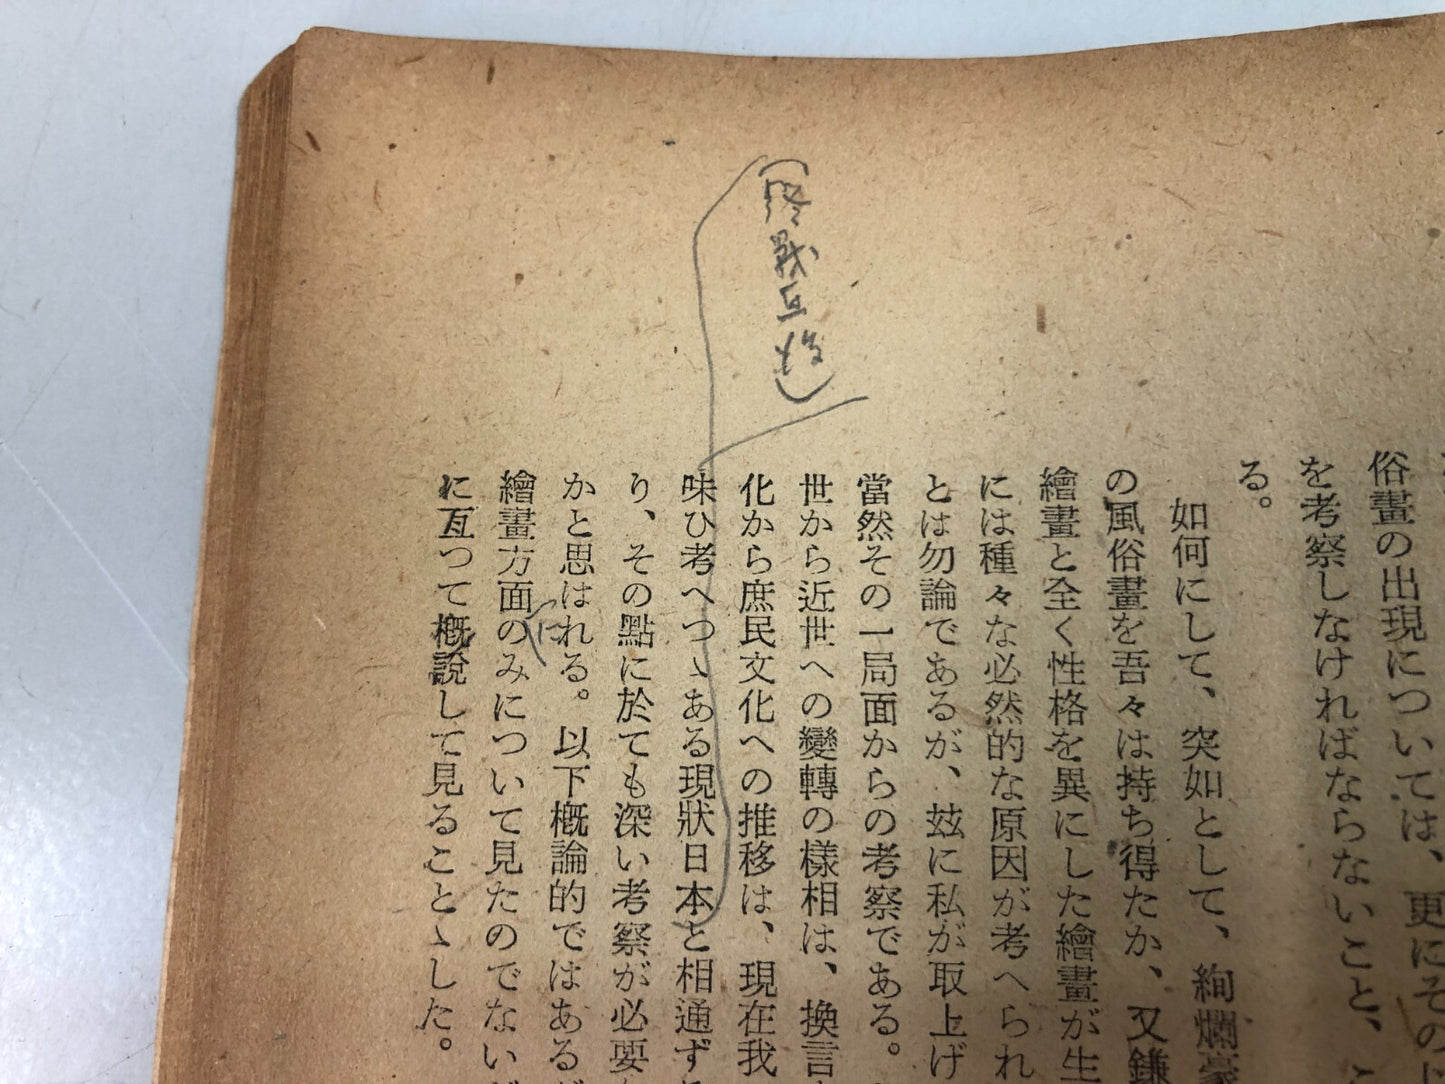 俗畫の出現については、更にその
を考察しなければならないこと、こ
る。
如何にして、突如として、絢爛豪
の風俗畫を吾々は持ち得たか、又鎌
繪畫と全く性格を異にした繪畫が生
には種々な必然的な原因が考へられ
とは勿論であるが、玆に私が取上げ
當然その一局面からの考察である。
世から近世への變轉の樣相は、換言
化から庶民文化への推移は、現在我
味ひ考へつゝある現狀日本と相通ず
り、その點に於ても深い考察が必要
かと思はれる。以下概論的ではあるが
繪畫方面のみについて見たのでない
に亙つて概說して見ることゝした。
(終戰直後)
に